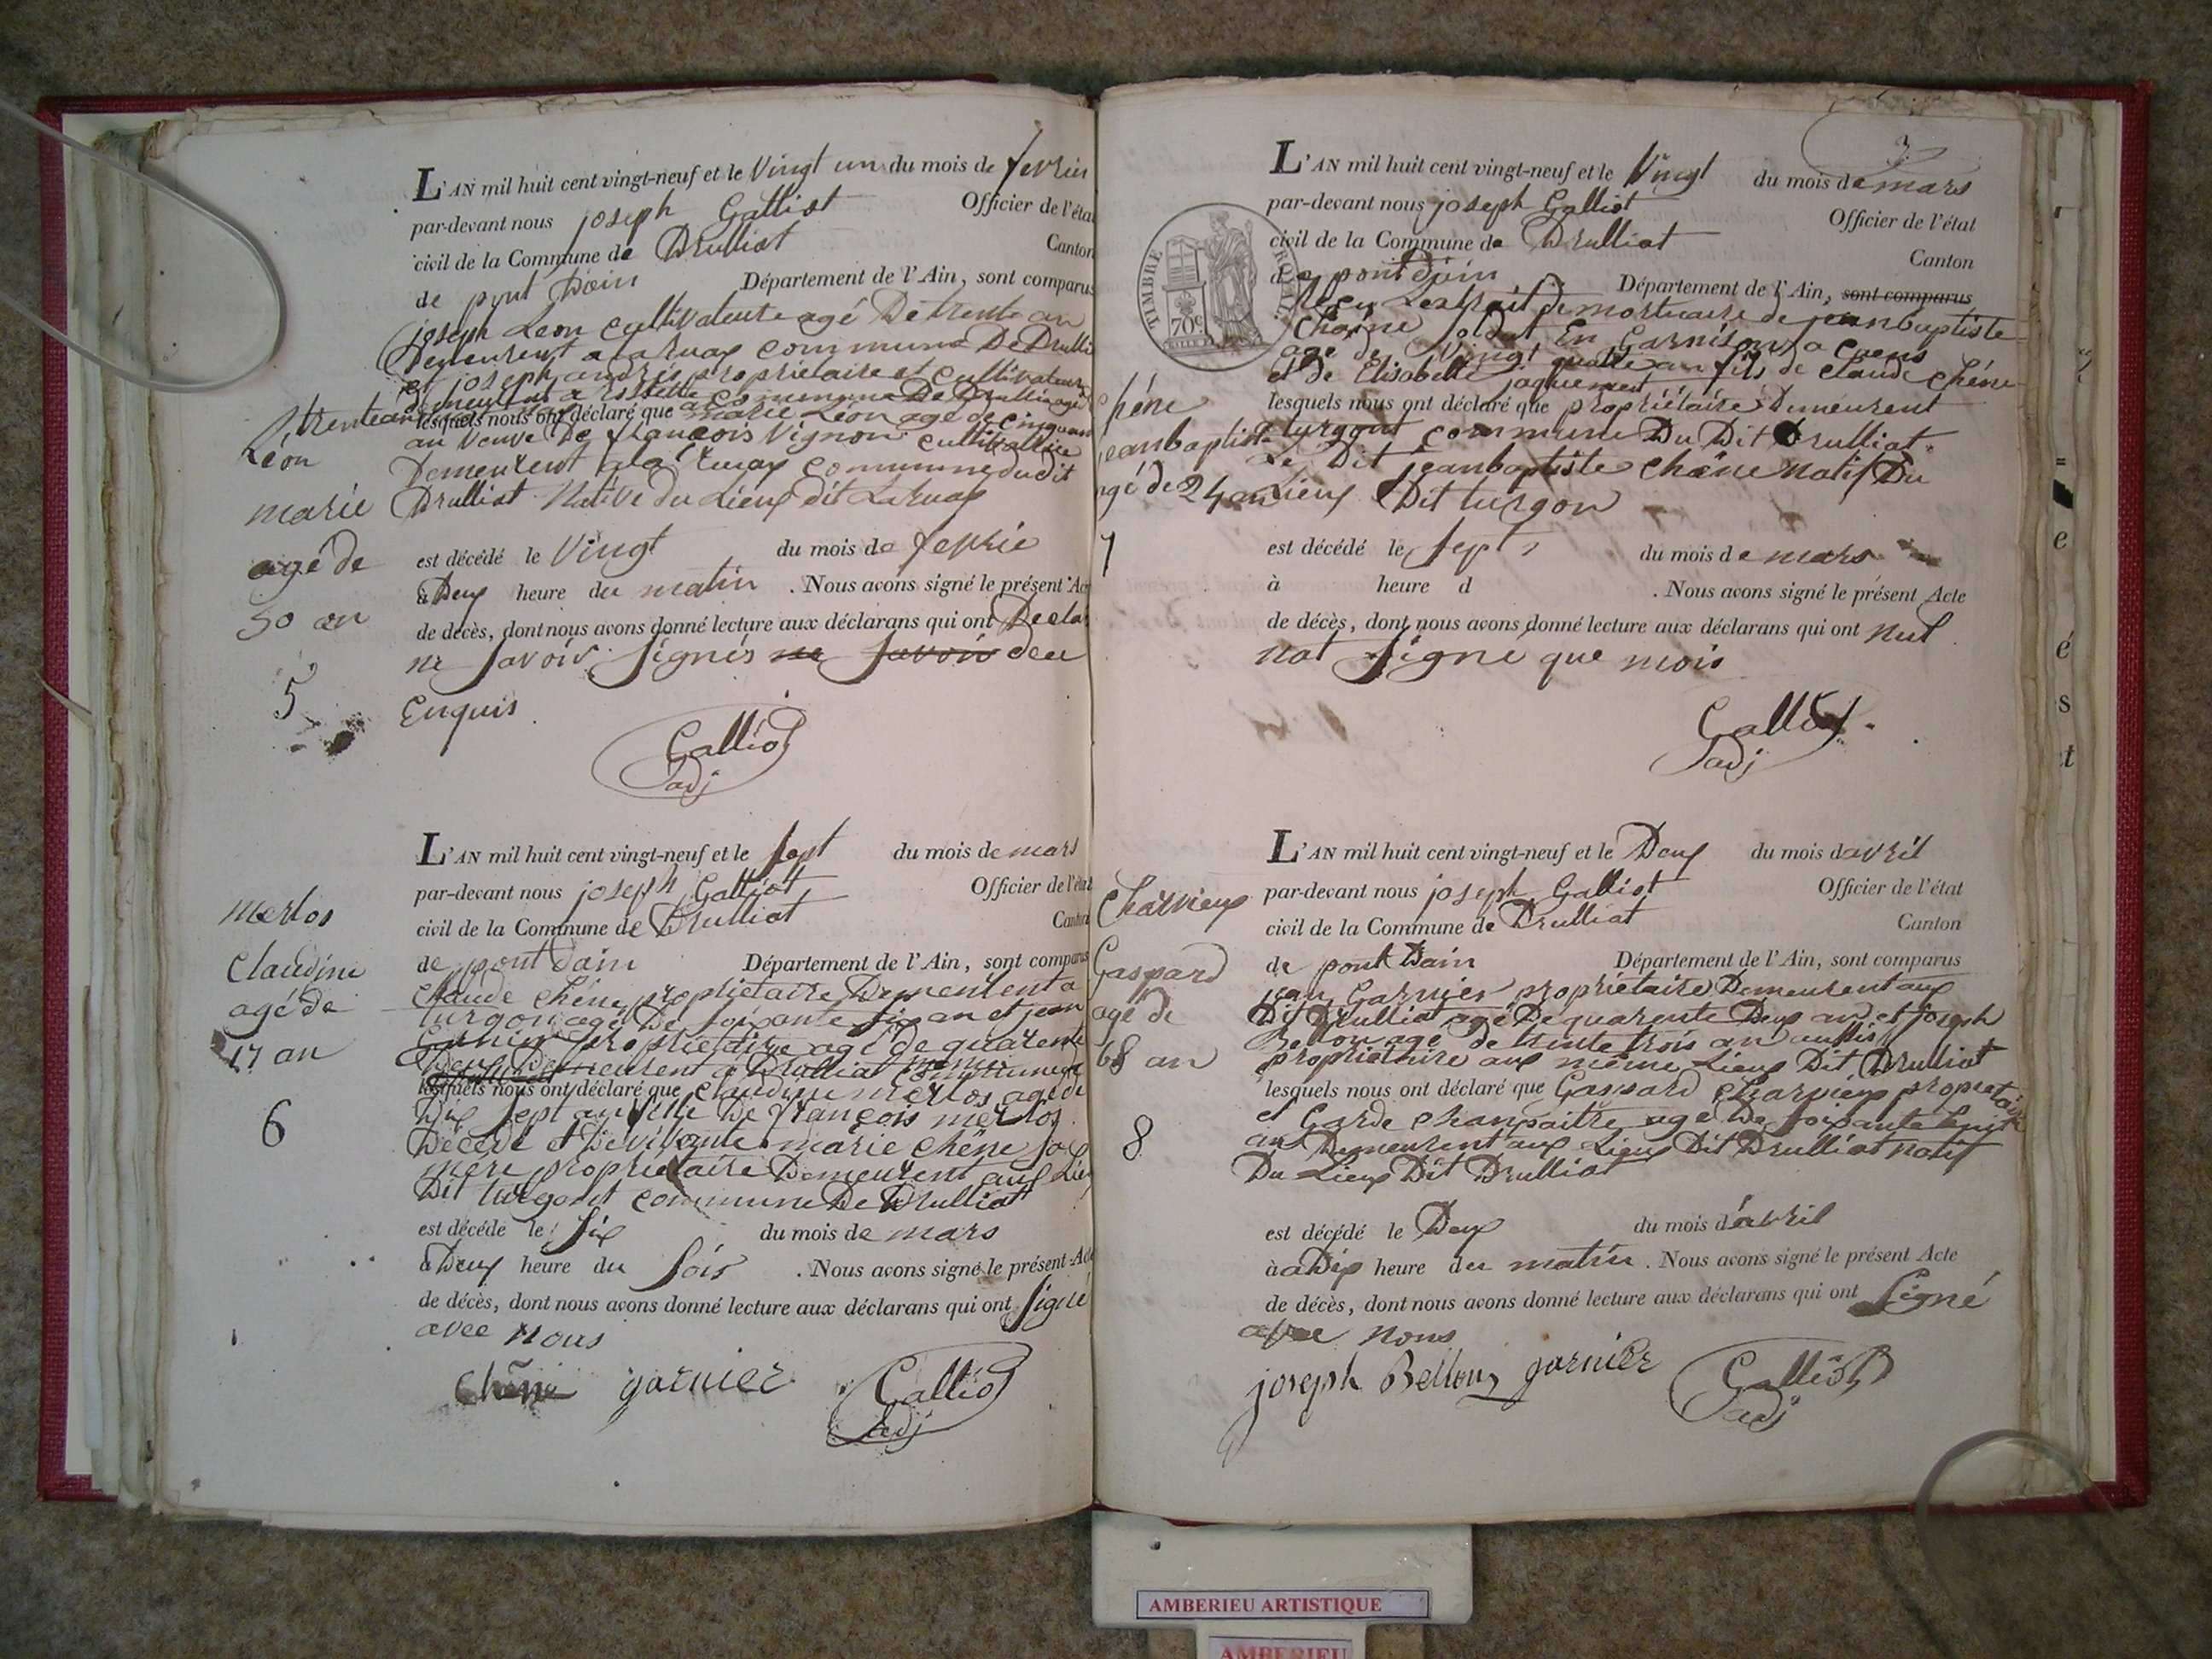 L'AN mil huit cent vingt-neuf et le Vingt un du mois de fevrier
par-devant nous joseph Galliot Officier de l'état
civil de la Commune de Drulliat Canton
de pont Dain Département de l'Ain, sont comparus
joseph Leon cultivateure agé De trente an
Demeurent a laruaz commune De Drulli
et joseph andrié propriétaire et cultivateur
Demeurent a commune De Drulliat agé
trente an lesquels nous ont déclaré que marie Léon agé de cinquan
an veuve De françois Vignon cultivatrice
Demeurent a la ruaz commune dudit
Drulliat Native du Lieux dit Laruaz
est décédé le Vingt du mois de fevrié
à Deux heure du matin . Nous avons signé le présent Ac
de décès, dont nous avons donné lecture aux déclarans qui ont Decla
ne savoir signés ne savoir deu
Enquis
Galliot
adj
Léon
marie
agé de
50 an
5
L'AN mil huit cent vingt-neuf et le sept du mois de mars
par-devant nous joseph Galliot Officier de l'état
civil de la Commune de Drulliat Canton
de pont Dain Département de l'Ain, sont comparus
Claude chêne propriétaire Demeurent a
turgon agé De soixante six an et jean
Garnier propriétaire agé de quarente
Deux Demeurent a Drulliat commune
lesquels nous ont déclaré que Claudine merlos agé de
Dix sept an fille De françois merlos
Décédé et De vivante marie chêne sa
mere propriétaire Demeurent aux Lieu
Dit turgont commune De Drulliat
est décédé le six du mois de mars
à Deux heure du soir . Nous avons signé le présent Ac
de décès, dont nous avons donné lecture aux déclarans qui ont signé
avec nous
Chêne garnier Galliot
adj
merlos
Claudine
agé de
17 an
6
3
L'AN mil huit cent vingt-neuf et le Vingt du mois de mars
par-devant nous joseph Galliot Officier de l'état
civil de la Commune de Drulliat Canton
de pont Djein Département de l'Ain, sont comparus
Reçu Lextrait De mortuaire de jeanbaptiste
Chaîne soldat En Garnison a caens
age de Vingt quatre an fils de claude chéne
et de Elisabette jaquemet
lesquels nous ont déclaré que propriétaire Demeurent
a turgont commune Du Dit Drulliat
Le Dit jeanbaptiste chêne natif Du
Lieux Dit turgon
est décédé le sept du mois de mars
à heure d . Nous avons signé le présent Acte
de décès, dont nous avons donné lecture aux déclarans qui ont nul
nat signé que mois
Galliot
adj
TIMBRE ROYAL
70c
chéne
jeanbaptiste
agé de 24 an
7
L'AN mil huit cent vingt-neuf et le Deux du mois davril
par-devant nous joseph Galliot Officier de l'état
civil de la Commune de Drulliat Canton
de pont Dain Département de l'Ain, sont comparus
jean Garnier propriétaire Demeurent aux
Dit Drulliat agé De quarente Deux an et joseph
Bellon agé de trente trois an aussis
propriétaire aux même Lieux Dit Drulliat
lesquels nous ont déclaré que Gaspard Charvieux propriétaire
et Garde chanpaitre agé De soixante huit
an Demeurent aux Lieux Dit Drulliat natif
Du Lieux Dit Drulliat
est décédé le Deux du mois d'avril
à a Dix heure du matin . Nous avons signé le présent Acte
de décès, dont nous avons donné lecture aux déclarans qui ont signé
avec nous
joseph Bellon garnier Galliot
adj
Charvieux
Gaspard
agé de
68 an
8
AMBERIEU ARTISTIQUE
AMBERIEU